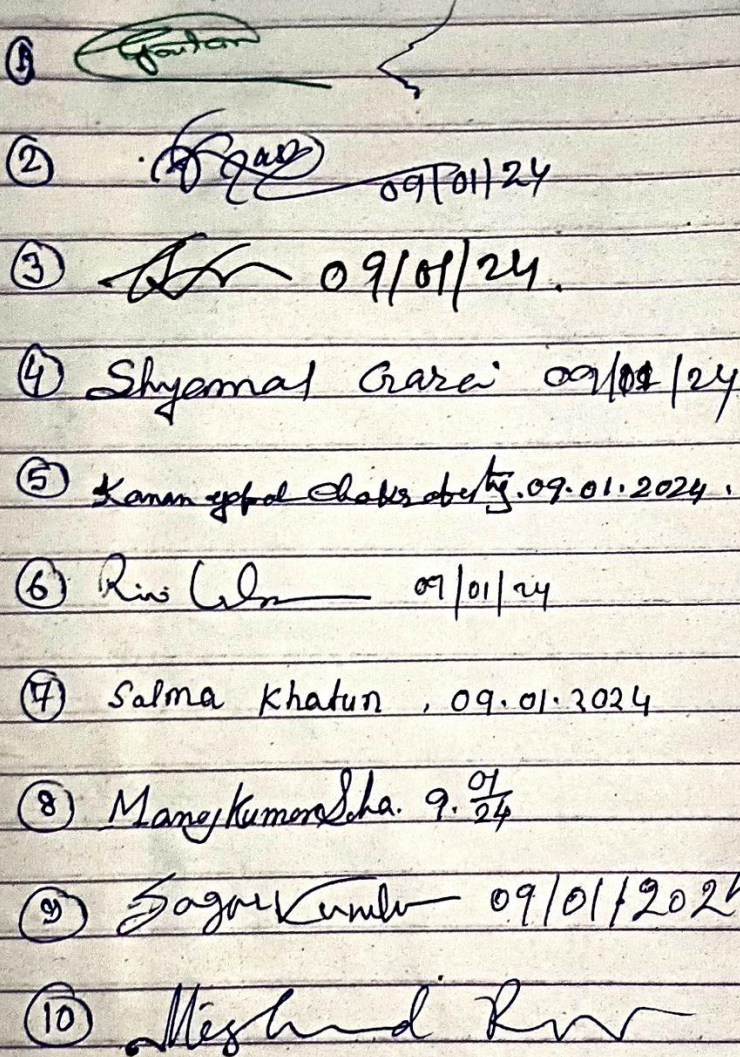 ① Goutam
② 09/01/24
③ 09/01/24.
④ Shyamal Garai 09/01/24
⑤ Kanan gopal Chakraborty. 09.01.2024.
⑥ 09/01/24
⑦ Salma Khatun, 09.01.2024
⑧ Manoj Kumar Saha. 9.01/24
⑨ Sagar Kundu 09/01/202
⑩